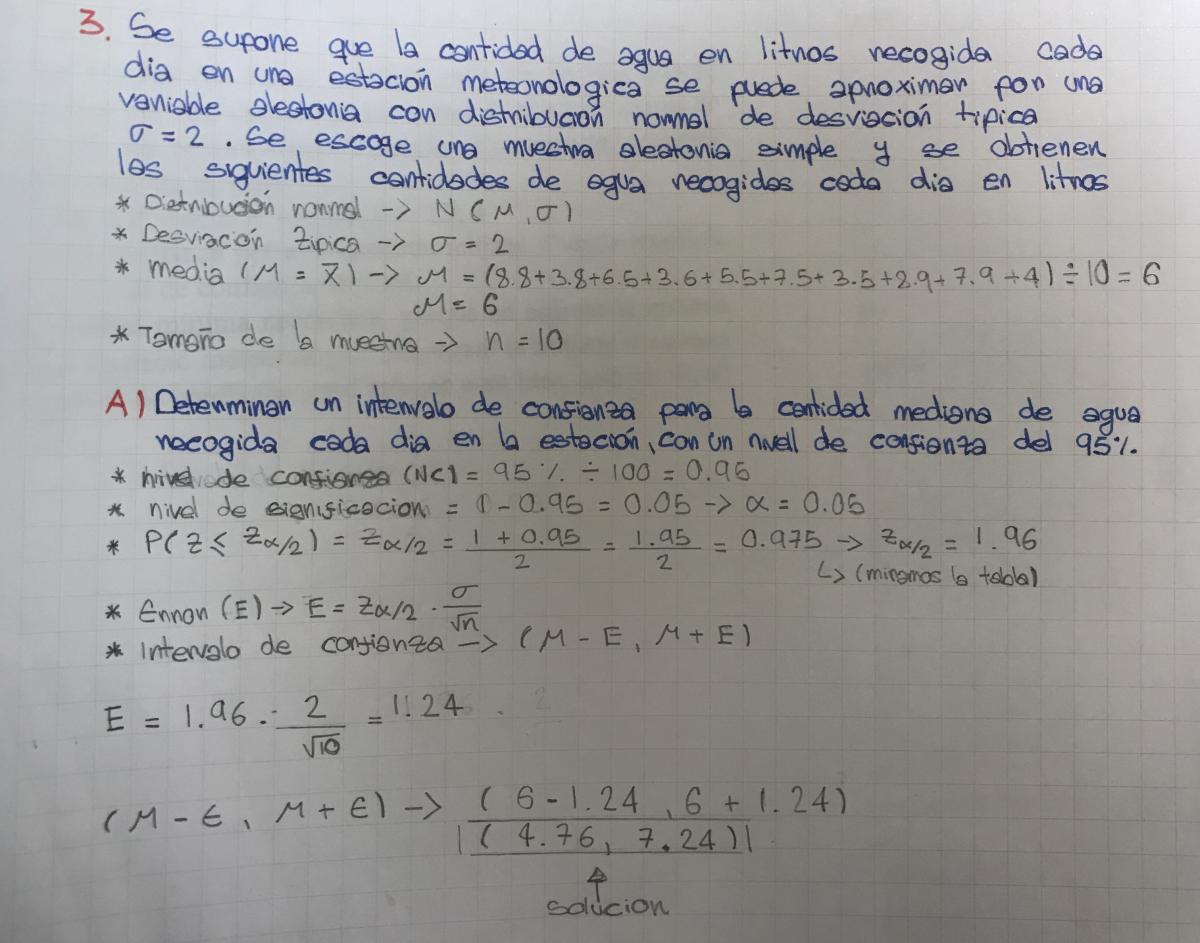 3. Se supone que la cantidad de agua en litros recogida cada
dia en una estación meteorologica se puede aproximar por una
variable aleatoria con distribución normal de desviación tipica
σ = 2. Se escoge una muestra aleatoria simple y se obtienen
las siguientes cantidades de agua recogidas cada dia en litros
* Distribución normal -> N (M, σ)
* Desviación tipica -> σ = 2
* media (M = x̄) -> M = (8.8+3.8+6.5+3.6+5.5+7.5+3.5+8.9+7.9+4) ÷ 10 = 6
M = 6
* Tamaño de la muestra -> n = 10
A) Determinar un intervalo de confianza para la cantidad mediana de agua
recogida cada dia en la estación, con un nivell de confianza del 95%.
* nivel de confianza (NC) = 95% ÷ 100 = 0.95
* nivel de significacion = 1 - 0.95 = 0.05 -> α = 0.05
* P(Z ≤ Zα/2) = Zα/2 = (1 + 0.95)/2 = 1.95/2 = 0.975 -> Zα/2 = 1.96
↳ (miramos la tabla)
* Error (E) -> E = Zα/2 · σ/√n
* Intervalo de confianza -> (M - E, M + E)
E = 1.96 · 2/√10 = 1.24
(M - E, M + E) -> (6 - 1.24, 6 + 1.24)
|(4.76, 7.24)|
solucion